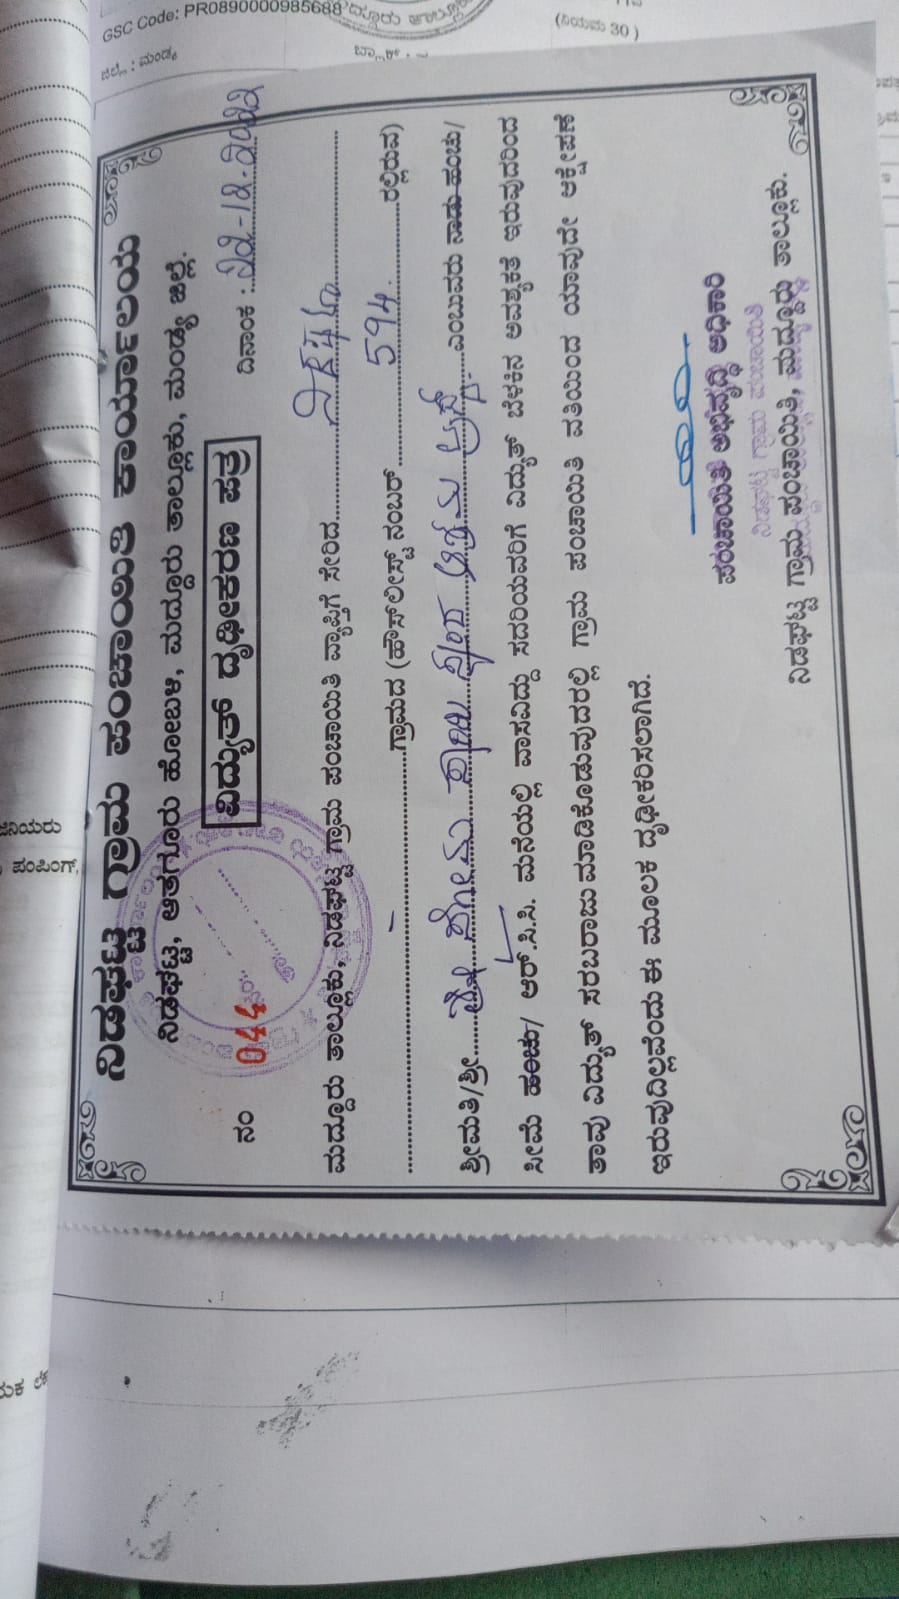 GSC Code: PR0890000985688
ಜಿಲ್ಲೆ : ಮಂಡ್ಯ
(ನಿಯಮ 30 )
ನಿಡಘಟ್ಟ ಗ್ರಾಮ ಪಂಚಾಯಿತಿ ಕಾರ್ಯಾಲಯ
ನಿಡಘಟ್ಟ, ಆತಗೂರು ಹೋಬಳಿ, ಮದ್ದೂರು ತಾಲ್ಲೂಕು, ಮಂಡ್ಯ ಜಿಲ್ಲೆ.
ನಂ 044
ವಿದ್ಯುತ್ ದೃಢೀಕರಣ ಪತ್ರ
ದಿನಾಂಕ : 22-12-2022
ಮದ್ದೂರು ತಾಲ್ಲೂಕು, ನಿಡಘಟ್ಟ ಗ್ರಾಮ ಪಂಚಾಯಿತಿ ವ್ಯಾಪ್ತಿಗೆ ಸೇರಿದ ನಿಡಘಟ್ಟ
ಗ್ರಾಮದ (ಹೌಸ್‌ಲೀಸ್ಟ್ ನಂಬರ್ 594 ರಲ್ಲಿರುವ)
ಶ್ರೀಮತಿ/ಶ್ರೀ ಎಂಬುವರು ನಾಡು ಹಂಚು/
ಸೀಮೆ ಹಂಚು/ ಆರ್.ಸಿ.ಸಿ. ಮನೆಯಲ್ಲಿ ವಾಸವಿದ್ದು ಸದರಿಯವರಿಗೆ ವಿದ್ಯುತ್ ಬೆಳಕಿನ ಅವಶ್ಯಕತೆ ಇರುವುದರಿಂದ
ತಾವು ವಿದ್ಯುತ್ ಸರಬರಾಜು ಮಾಡಿಕೊಡುವುದರಲ್ಲಿ ಗ್ರಾಮ ಪಂಚಾಯಿತಿ ವತಿಯಿಂದ ಯಾವುದೇ ಆಕ್ಷೇಪಣೆ
ಇರುವುದಿಲ್ಲವೆಂದು ಈ ಮೂಲಕ ದೃಢೀಕರಿಸಲಾಗಿದೆ.
ಪಂಚಾಯಿತಿ ಅಭಿವೃದ್ಧಿ ಅಧಿಕಾರಿ
ನಿಡಘಟ್ಟ ಗ್ರಾಮ ಪಂಚಾಯಿತಿ
ನಿಡಘಟ್ಟ ಗ್ರಾಮ ಪಂಚಾಯಿತಿ, ಮದ್ದೂರು ತಾಲ್ಲೂಕು.